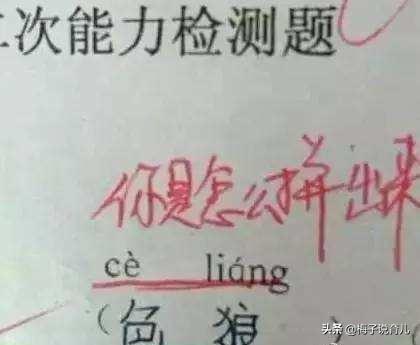 次能力检测题
你是怎么拼出来
cè liáng
(色狼)
头条 @梅子说育儿